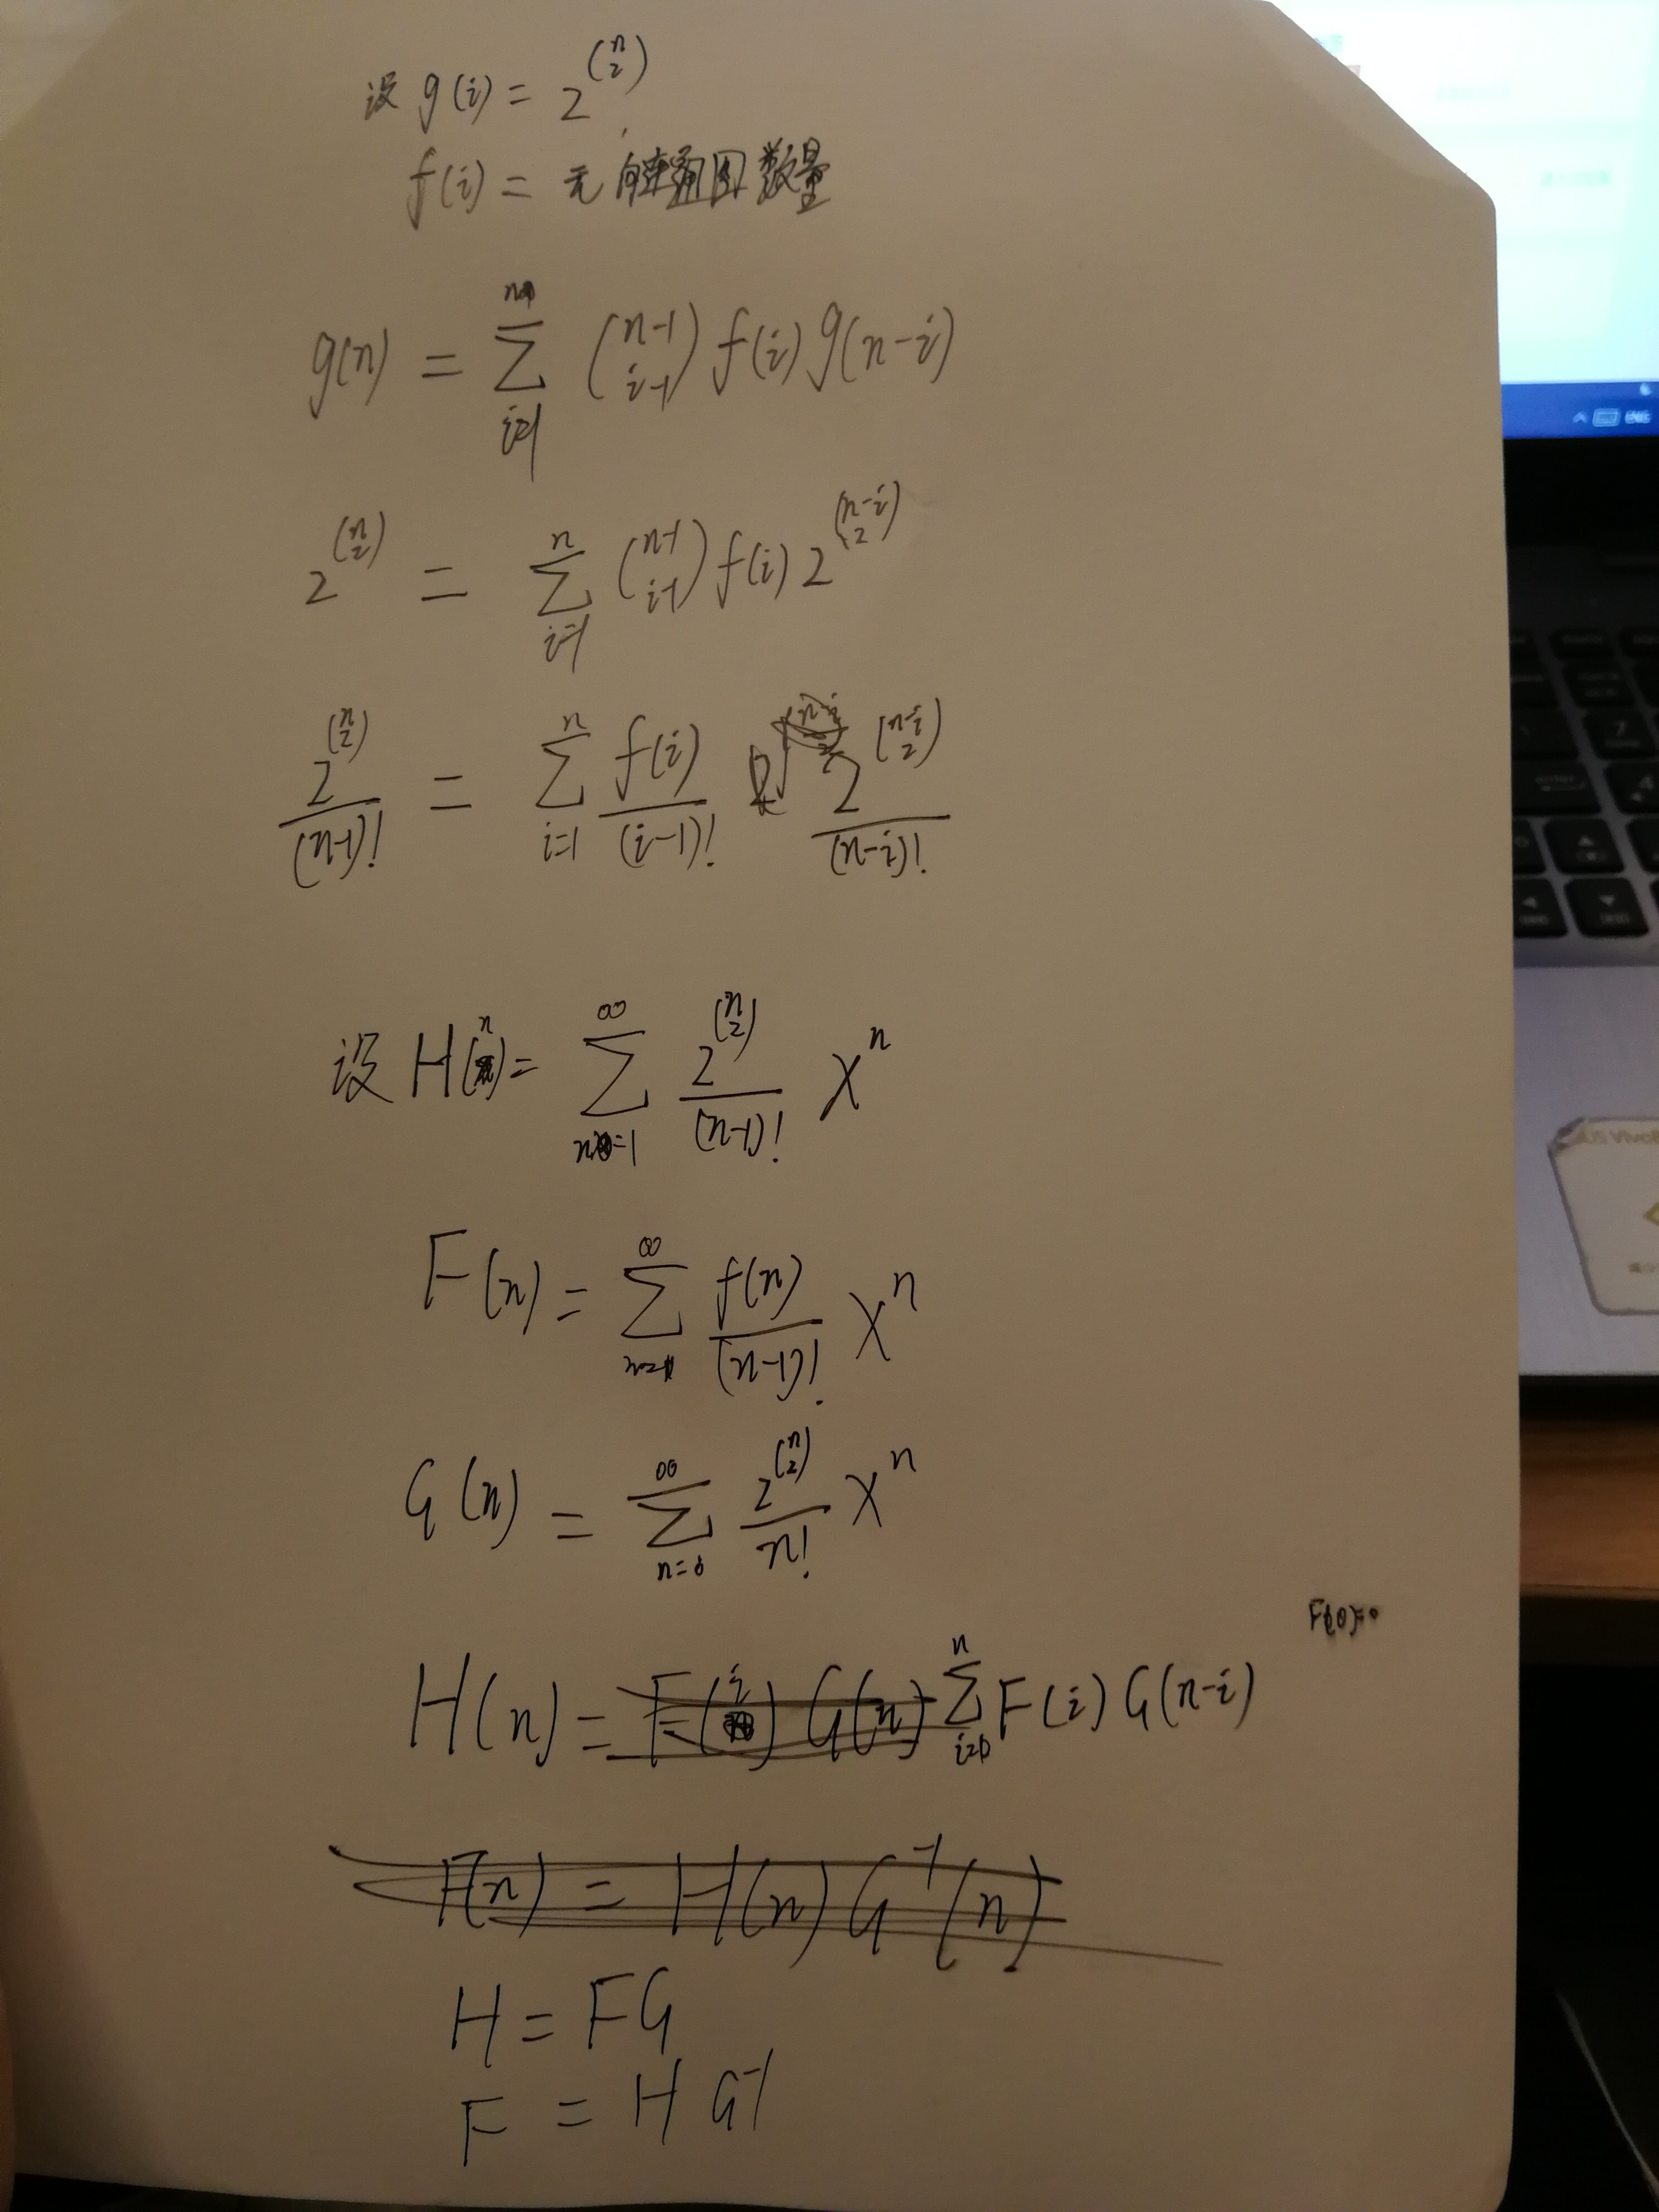 设 g(i) = 2^{\binom{n}{2}}
f(i) = 无向连通图数量
g(n) = \sum_{i=1}^{n} \binom{n-1}{i-1} f(i) g(n-i)
2^{\binom{n}{2}} = \sum_{i=1}^{n} \binom{n-1}{i-1} f(i) 2^{\binom{n-i}{2}}
\frac{2^{\binom{n}{2}}}{(n-1)!} = \sum_{i=1}^{n} \frac{f(i)}{(i-1)!} \frac{2^{\binom{n-i}{2}}}{(n-i)!}
设 H(n) = \sum_{n=1}^{\infty} \frac{2^{\binom{n}{2}}}{(n-1)!} x^n
F(n) = \sum_{n=1}^{\infty} \frac{f(n)}{(n-1)!} x^n
G(n) = \sum_{n=0}^{\infty} \frac{2^{\binom{n}{2}}}{n!} x^n
F(0)=0
H(n) = F(i) G(n) \sum_{i=0}^{n} F(i) G(n-i)
F(n) = H(n) G^{-1}(n)
H = FG
F = H G^{-1}
ENG